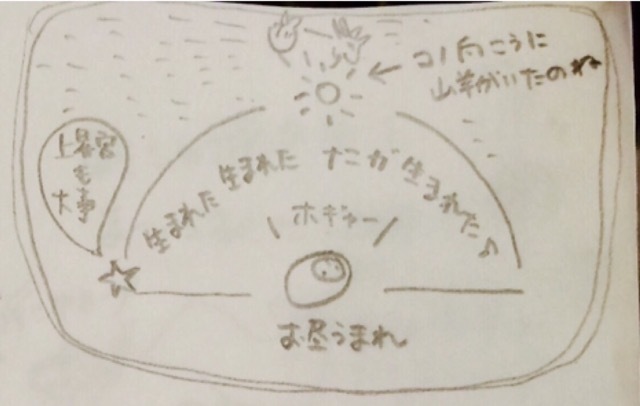 コノ向こうに
山羊がいたのね
上昇宮
も
大事
生まれた 生まれた ナニガ 生まれた♪
\ ホギャー /
お昼うまれ